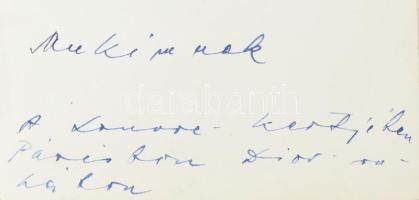 Mukimnak
darabanth
A Louvre- kertjében
Párisban Dior ru-
hában